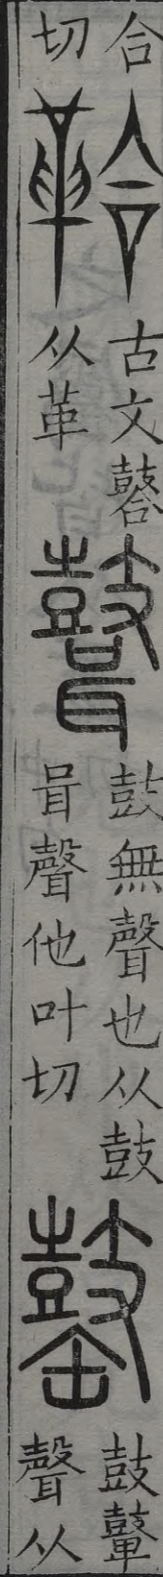 合
切
鞈
古文
从革
鼓無聲也从鼓
咠聲他叶切
鼓鼙
聲从